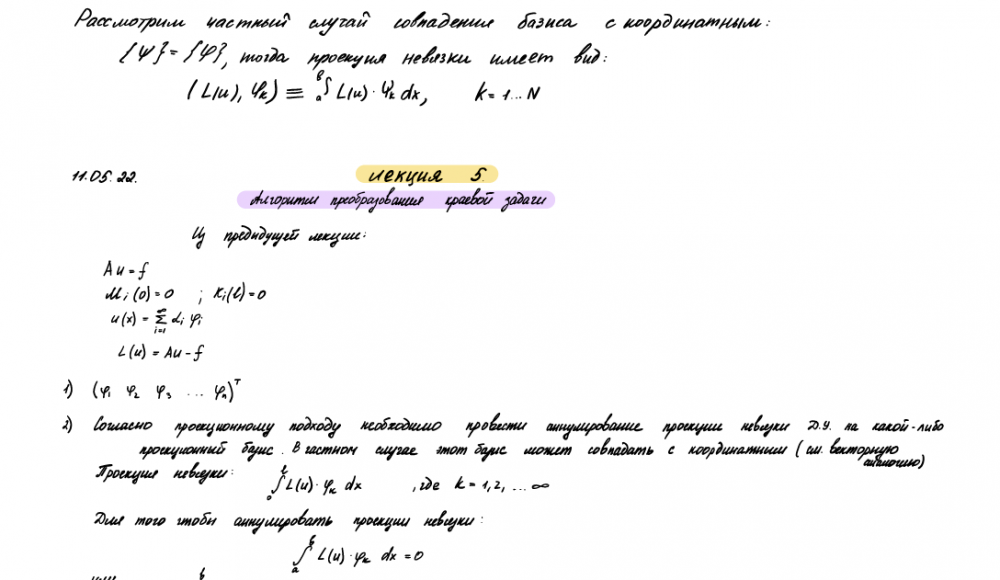 Рассмотрим частный случай совпадения базиса с координатным:
{Ψ} = {φ}, тогда проекция невязки имеет вид:
(L(u), φₖ) ≡ ₐ∫ᵇ L(u)·φₖ dx, k = 1...N
11.05.22. лекция 5.
Алгоритм преобразования краевой задачи
Из предыдущей лекции:
Au = f
Mᵢ(0) = 0 ; Kᵢ(ℓ) = 0
u(x) = ∑ᵢ₌₁^∞ αᵢ φᵢ
L(u) = Au - f
1) (φ₁ φ₂ φ₃ ... φₙ)ᵀ
2) Согласно проекционному подходу необходимо провести аннулирование проекции невязки Д.У. на какой-либо
проекционный базис. В частном случае этот базис может совпадать с координатным (см. векторную
аналогию)
Проекция невязки: ₀∫^ℓ L(u)·φₖ dx , где k = 1, 2, ... ∞
Для того чтобы аннулировать проекции невязки:
ₐ∫ᵇ L(u)·φₖ dx = 0
или b